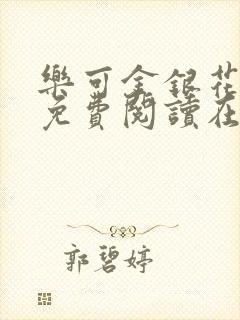 樂可金銀花
免費閱讀在
郭碧婷